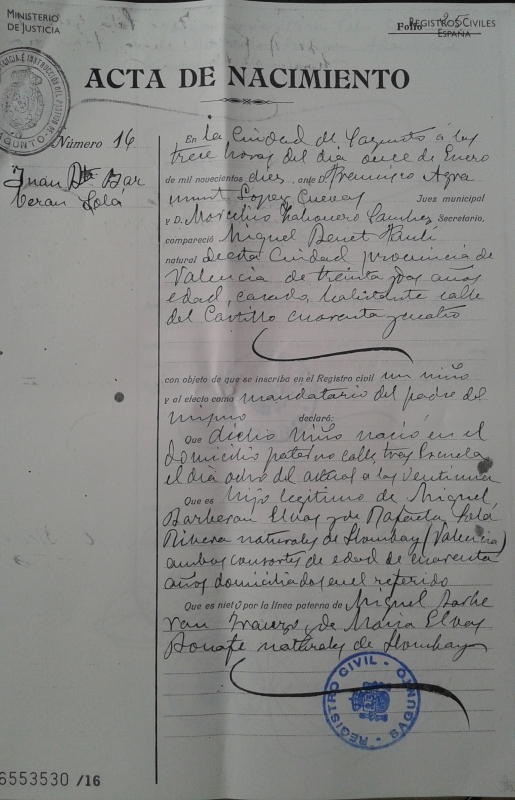 MINISTERIO
DE JUSTICIA
Folio 25
REGISTROS CIVILES
ESPAÑA
ACTA DE NACIMIENTO
Número 16
Juan Bta Bar
beran Sola
En la Ciudad de Sagunto á las
trece horas del día once de Enero
de mil novecientos diez, ante D. Francisco Agra
munt López Cuevas Juez municipal
y D. Marcelino Sanchez Secretario,
compareció Miguel Benet
natural de esta Ciudad provincia de
Valencia de treinta y dos años
edad, casado, habitante calle
del Castillo cuarenta y cuatro
con objeto de que se inscriba en el Registro civil un niño
y al efecto como mandatario del padre del
mismo declaró:
Que dicho niño nació en el
domicilio paterno calle tras Escuela
el día ocho del actual a las
Que es hijo legítimo de Miguel
Barberan Elvas y de Rafaela Solá
Rivera naturales de Llombay (Valencia)
ambos consortes de edad de cuarenta
años domiciliados en el referido
Que es nieto por la línea paterna de Miguel Barbe
ran y de Maria Elvas
naturales de Llombay
REGISTRO CIVIL - SAGUNTO
6553530 /16